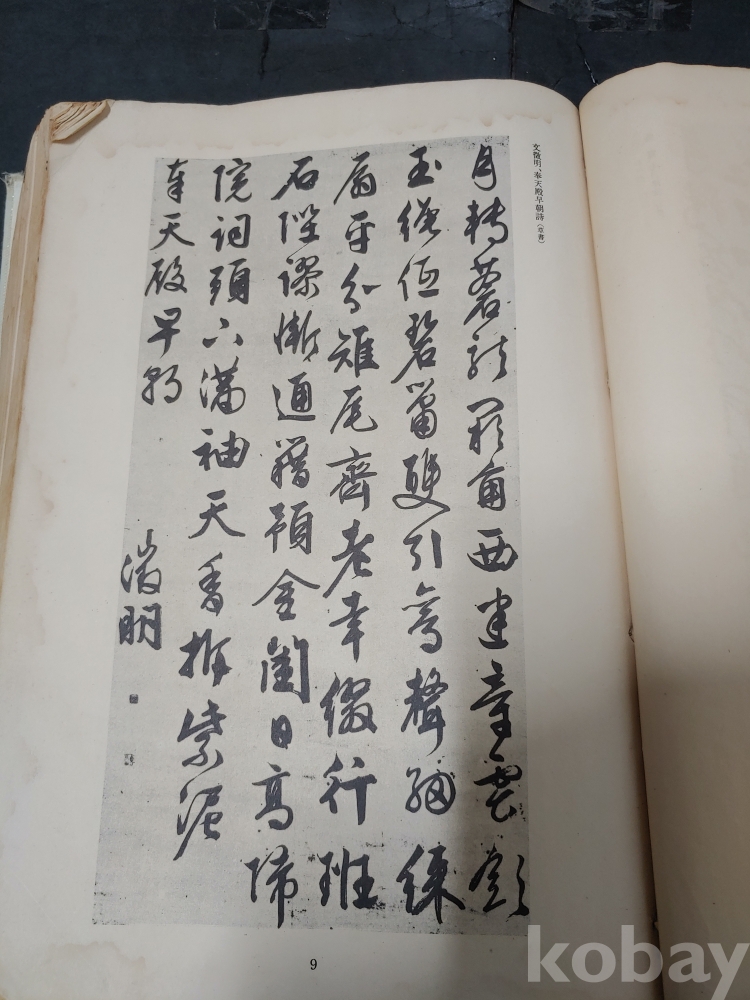 文徵明、奉天殿早朝詩（草書）
月轉蒼龍闕角西建章雲斂
玉繩低碧簫雙引鸞聲細綵
扇平分雉尾齊老幸綴行班
石陛謬慚通籍預金閨日高歸
院詞頭下滿袖天香拆紫泥
奉天殿早朝
徵明
9
kobay